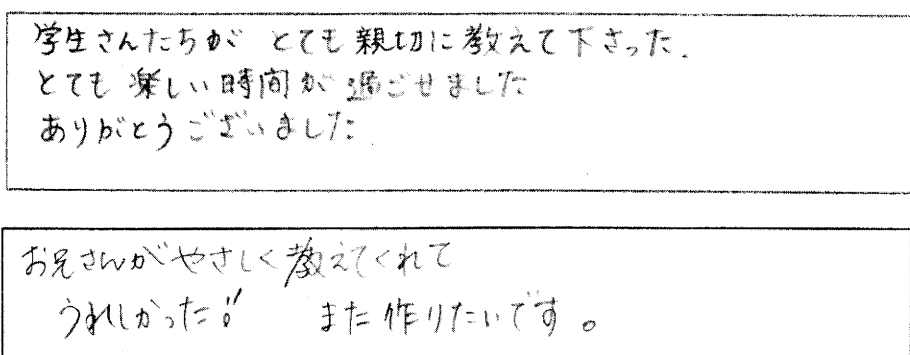 学生さんたちが とても親切に教えて下さった.
とても楽しい時間が過ごせました
ありがとうございました
お兄さんがやさしく教えてくれて
うれしかった!! また作りたいです。